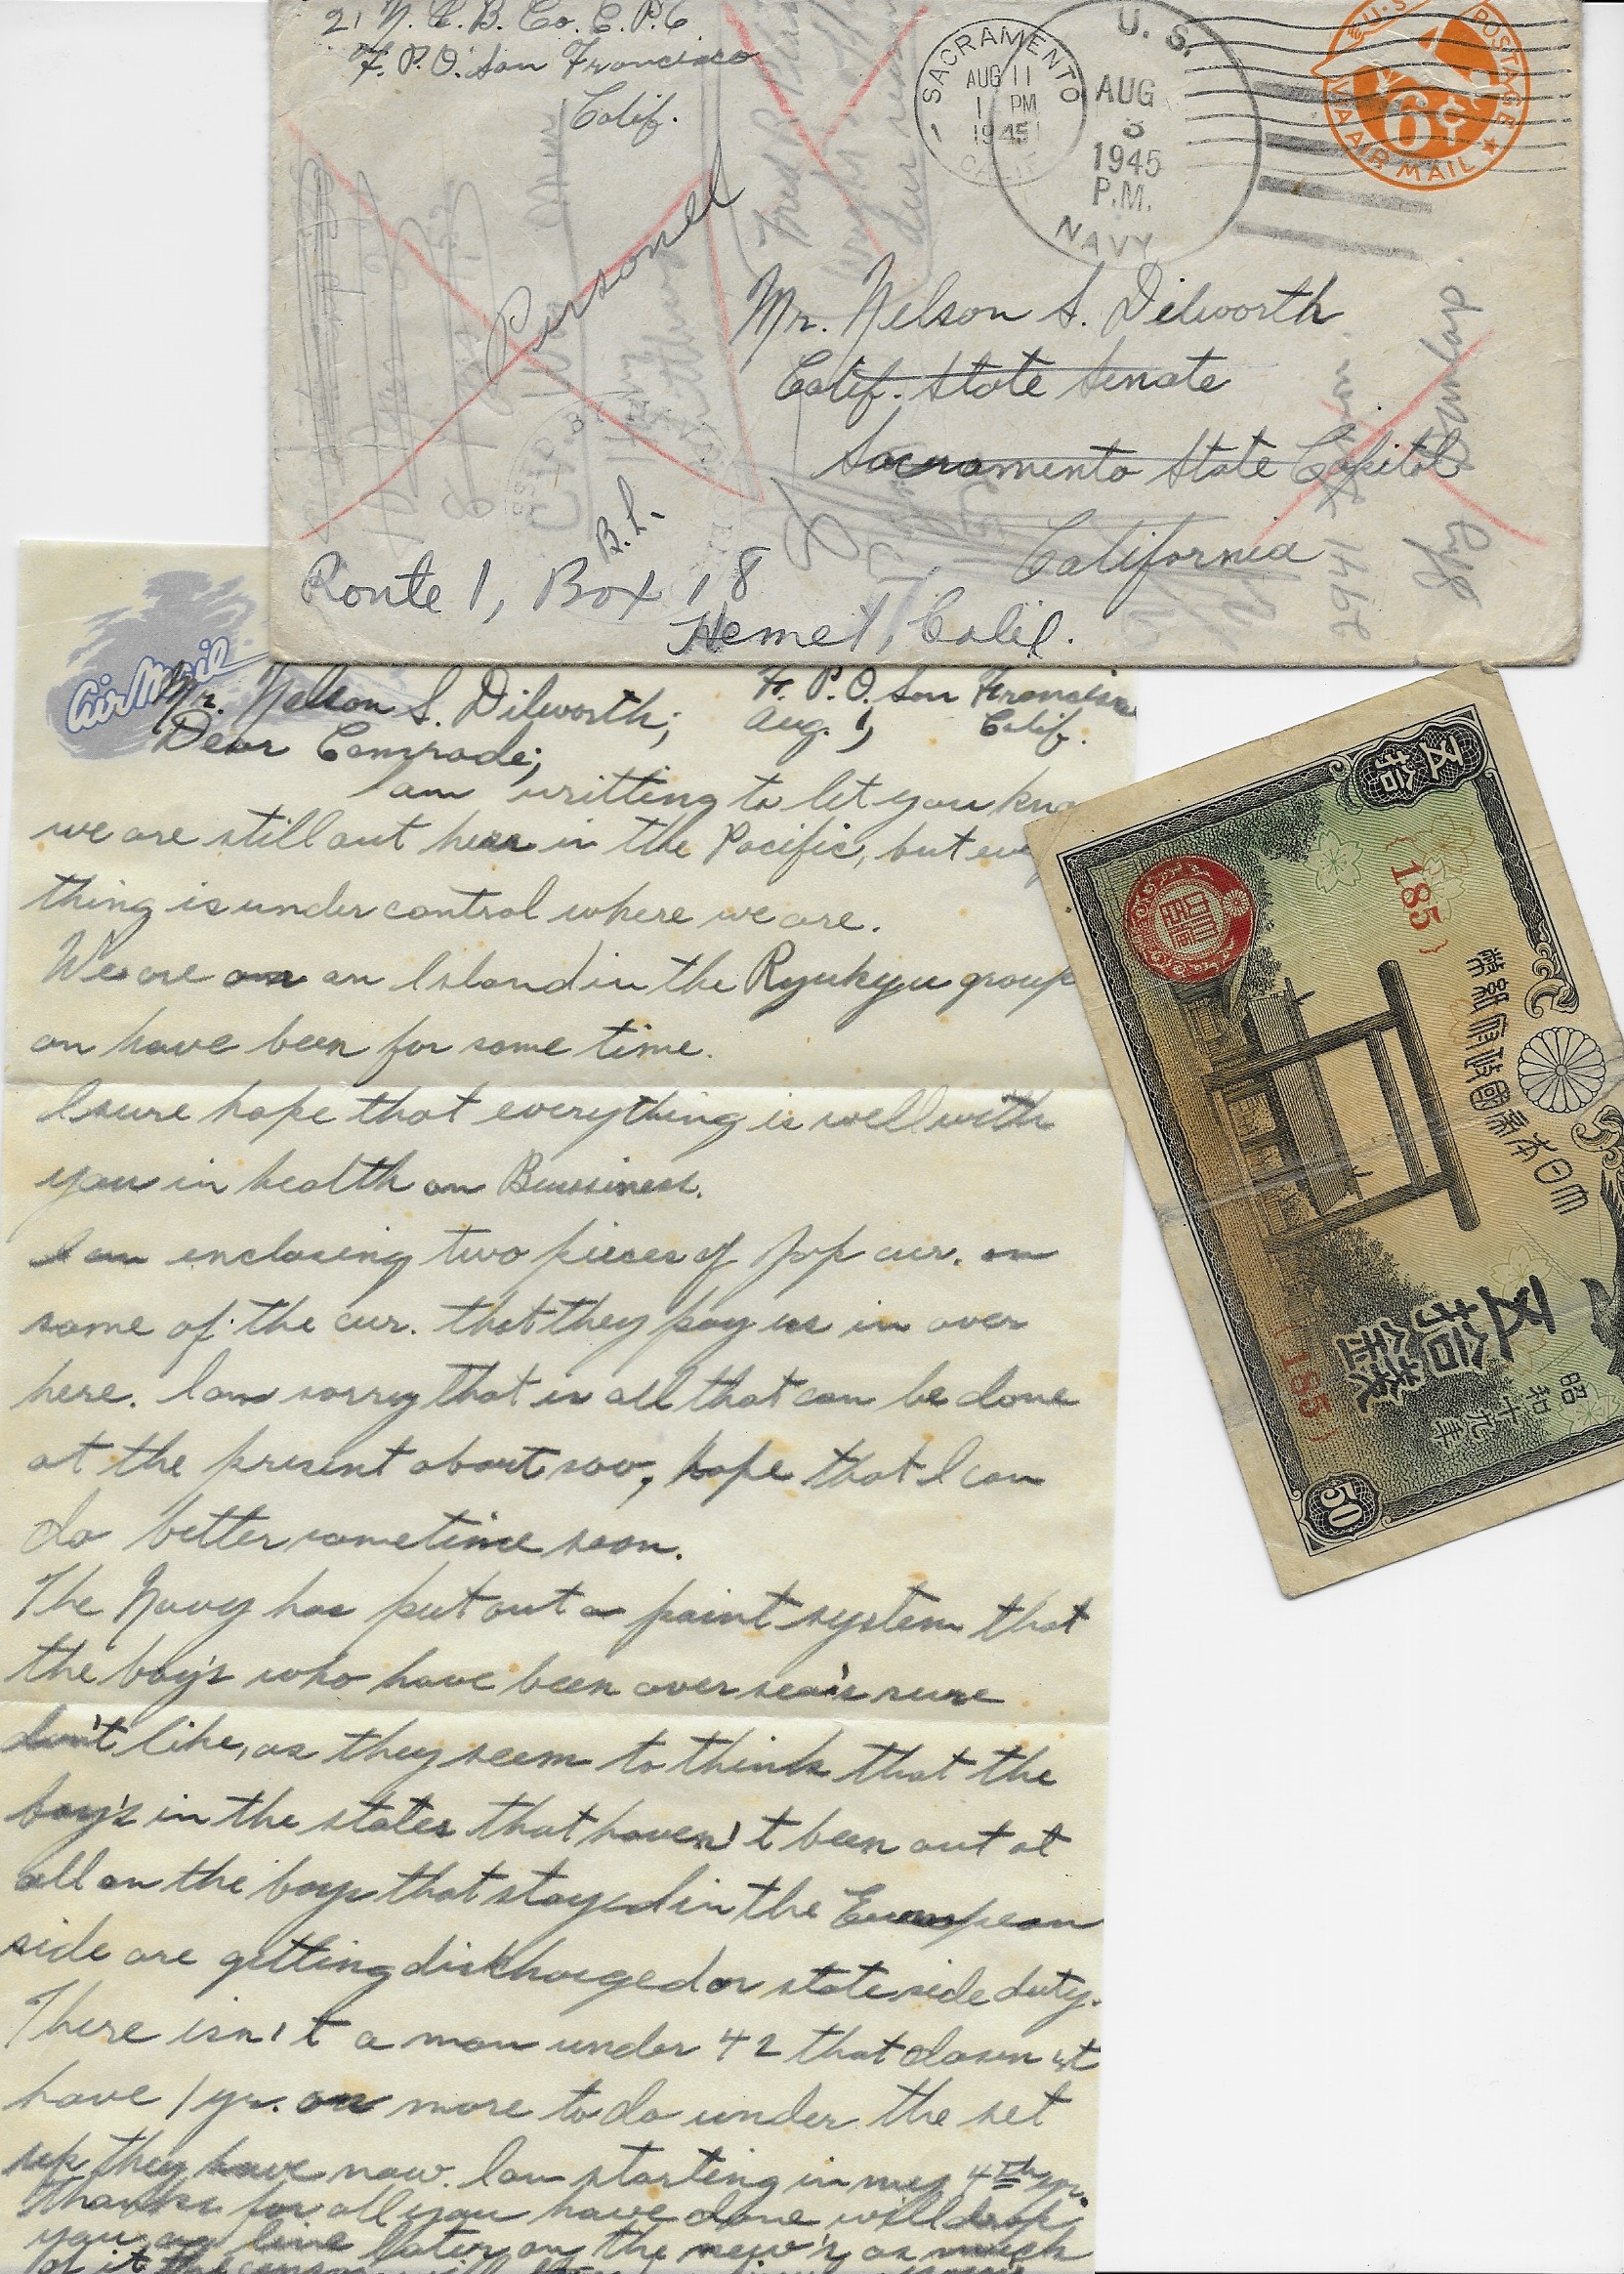 21 N. C. B. Co. C. P. 6
F. P. O. San Francisco
Calif.
Personel
SACRAMENTO
AUG 11
1 PM
1945
CALIF
U. S.
AUG
3
1945
P.M.
NAVY
U.S. POSTAGE
6¢
VIA AIR MAIL
Mr. Nelson S. Dilworth
Calif. State Senate
Sacramento State Capitol
California
B.L.
Route 1, Box 18
Hemet, Calif.
2941
Dunlap
Air Mail
F. P. O. San Francisco
Mr. Nelson S. Dilworth; Aug. 1, Calif.
Dear Comrade;
I am writting to let you kno
we are still out here in the Pacific, but
thing is under control where we are.
We are on an Island in the Ryukyu group
an have been for some time.
I sure hope that everything is well with
you in health an Bussiness.
I am enclosing two pieces of Jap cur. an
some of the cur. that they pay us in over
here. I am sorry that is all that can be done
at the present about sov, hope that I can
do better sometime soon.
The Navy has put out a point system that
the boy's who have been over sea's sure
don't like, as they seem to think that the
boy's in the states that haven't been out at
all an the boys that stayed in the European
side are getting disthcarged or state side duty.
There isn't a man under 42 that dosen't
have 1 yr. or more to do under the set
up they have now. I am starting in my 4th yr.
Thanks for all you have done will drop
you an line later on the new's as much
of it
五拾
{185}
大日本帝國政府紙幣
五拾錢
昭和十九年
{185}
50